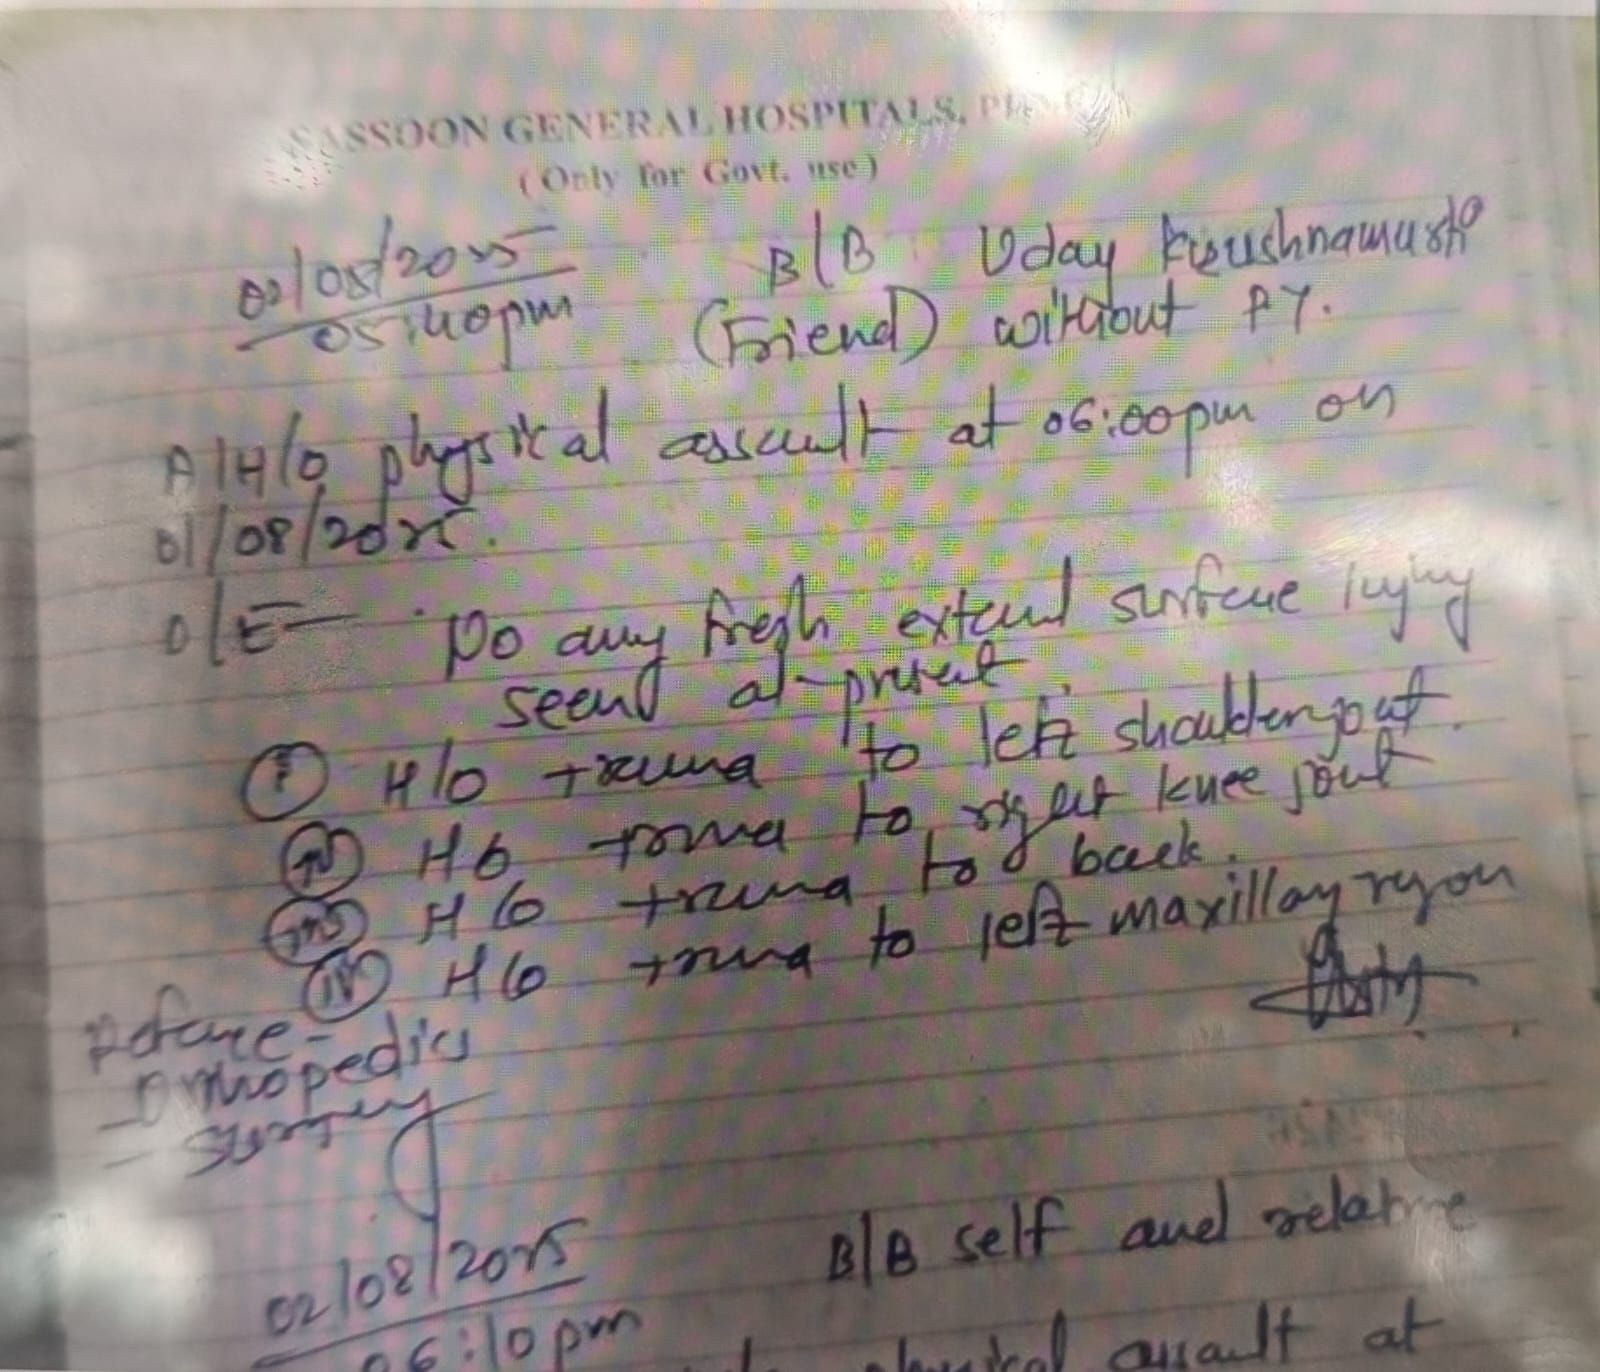 SASSOON GENERAL HOSPITALS,
(Only for Govt. use)
02/08/2025 B/B Uday
05:40pm (Friend) without PY.
A/H/O physical assault at 06:00pm on
01/08/2025.
O/E— No any fresh extend surface injury
seend at present
(I) H/O trauma to left shoulder joint.
H/O trauma to right knee joint
H/O trauma to back.
(IV) H/O trauma to left maxillary region
- Orthopedics
- Surgery
02/08/2025 B/B self and relative
06:10pm
physical assault at